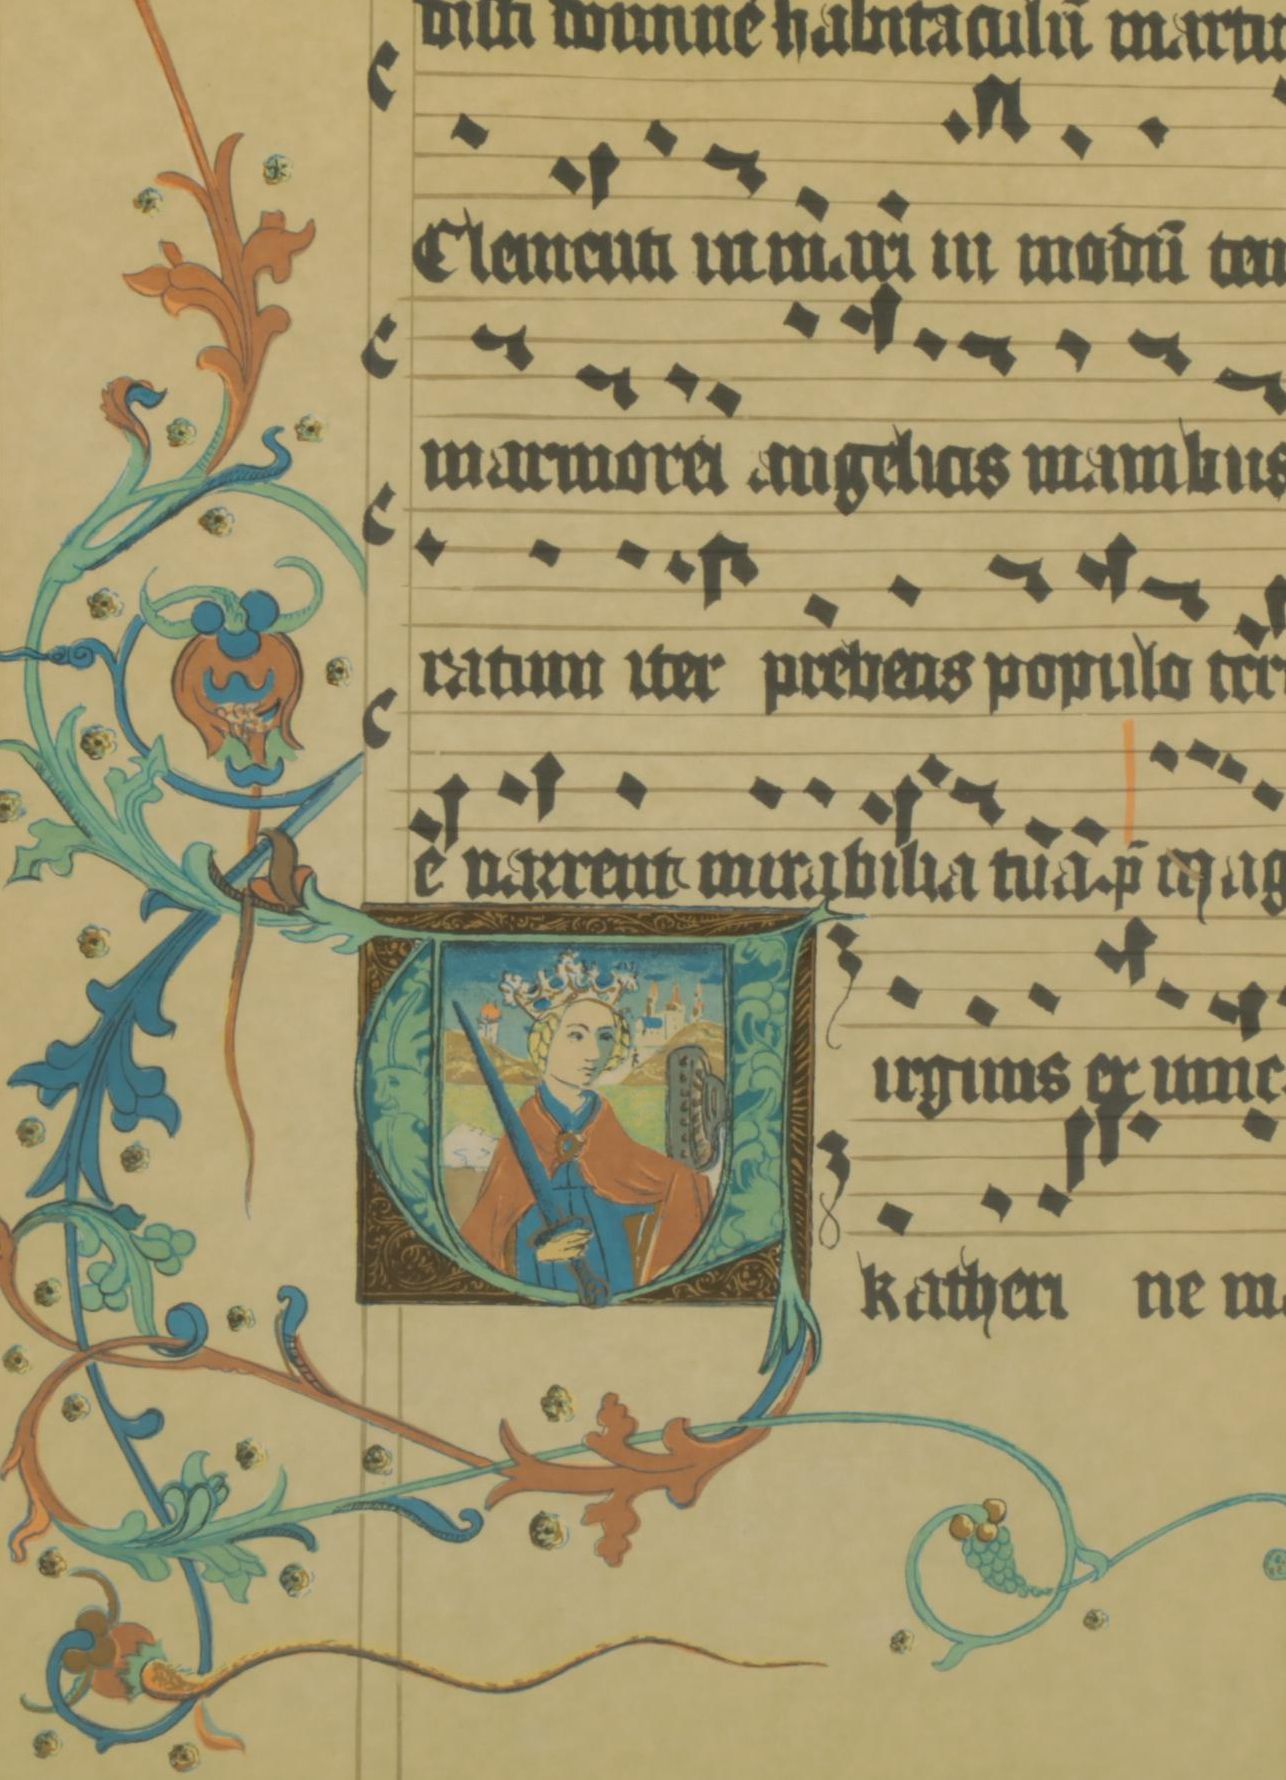 disti domine habitaculū martiri
Clementi in mari in modū tem
marmorei angelicis manibus
ratum iter prebens populo terr
e narrent mirabilia tua. p̄ mag
Virginis ex imie
katheri ne ma